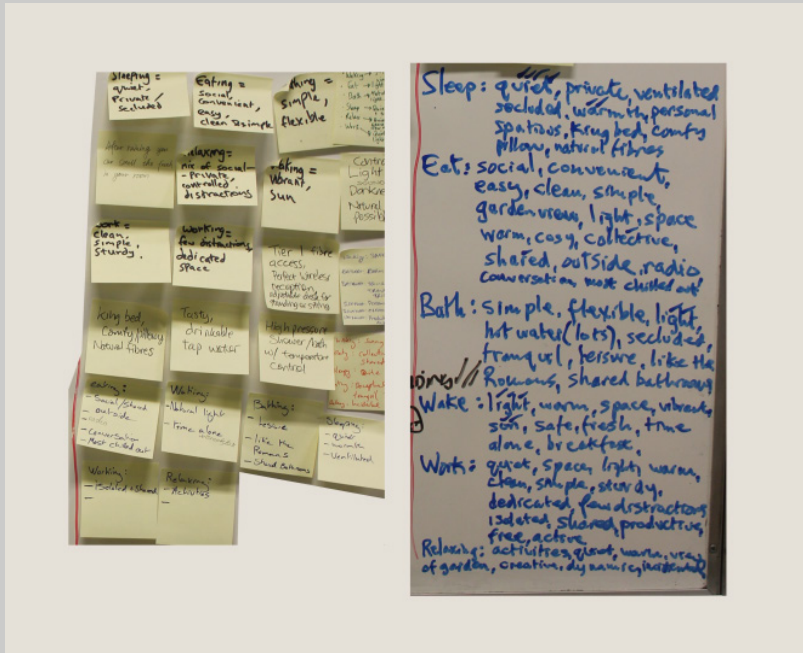 Sleeping =
quiet,
Private/
secluded
Eating =
social,
convenient,
easy,
clean & simple
simple,
flexible
After eating you
can smell the food
in your room
Relaxing =
mix of social
- Private
controlled
distractions
vibrant,
sun
Light
Natural
Work =
clean,
simple,
sturdy.
Working =
few distractions,
dedicated
space
Tier 1 fibre
access,
Perfect wireless
reception,
adjustable desk for
standing or sitting
King bed,
Comfy pillow,
Natural fibres
Tasty,
drinkable
tap water
High pressure
Shower/bath
w/ temperature
control
eating:
- Social/Shared
- outside
- Conversation
- Most chilled out
Waking:
- Natural light
- Time alone
Bathing:
- leisure
- like the
Romans
- Shared Bathrooms
Sleeping
- quiet
- warmth
- Ventilated
Working:
- isolated + shared
-
Relaxing:
- Activities
-
Sleep: quiet, private, ventilated
secluded, warmth, personal
spacious, king bed, comfy
pillow, natural fibres
Eat: social, convenient,
easy, clean, simple,
garden view, light, space
warm, cosy, collective,
shared, outside, radio
conversation, most chilled out
Bath: simple, flexible, light,
hot water (lots), secluded,
tranquil, leisure, like the
Romans, shared bathrooms
Wake: light, warm, space, vibrant,
sun, safe, fresh, time
alone, breakfast,
Work: quiet, space, light, warm,
clean, simple, sturdy,
dedicated, few distractions
isolated, shared, productive,
free, active
Relaxing: activities, quiet, warm, view
of garden, creative, dynamic,